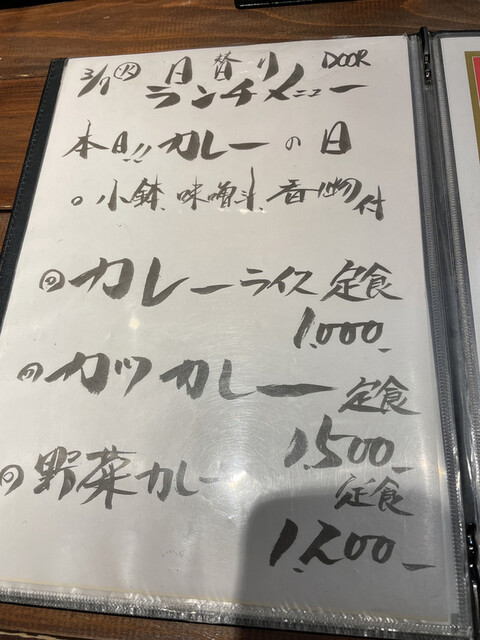 3/7 ㊋ 日替り DOOR
ランチメニュー
本日!! カレーの日
○ 小鉢、味噌汁、香物付
カレーライス 定食
1,000-
カツカレー 定食
1,500-
野菜カレー 定食
1,200-